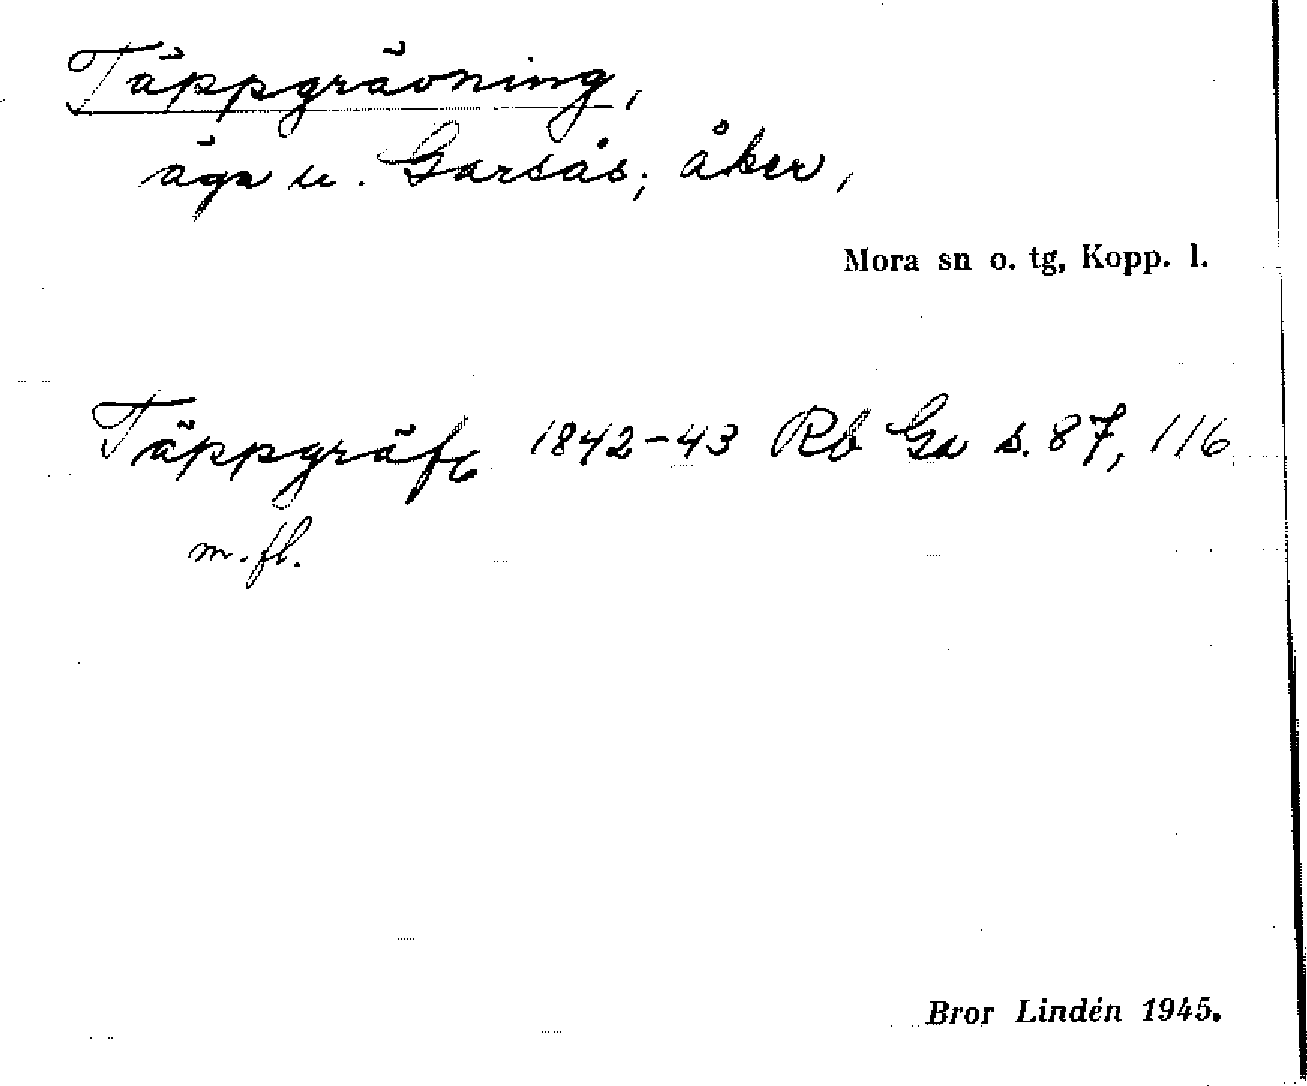 Täppgrävning,
äga u. Garsås; åker,
Mora sn o. tg, Kopp. l.
Täppgräf 1842-43 Rb Ga s. 87, 116
m. fl.
Bror Lindén 1945.